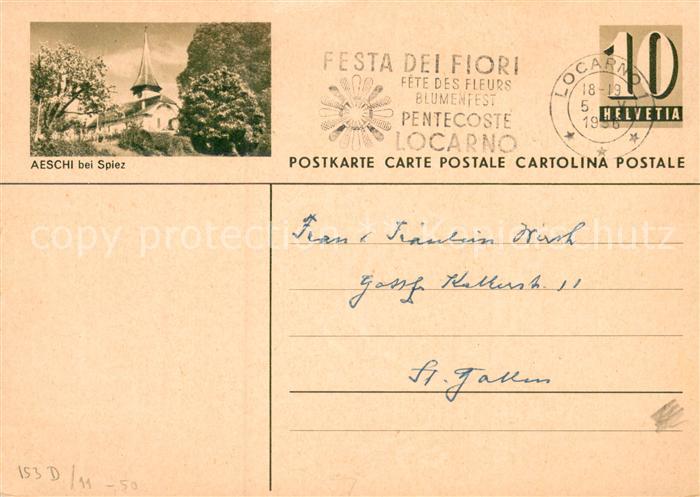 10
HELVETIA
LOCARNO
18-19
5 V
FESTA DEI FIORI
FÊTE DES FLEURS
BLUMENFEST
PENTECOSTE
LOCARNO
AESCHI bei Spiez
POSTKARTE CARTE POSTALE CARTOLINA POSTALE
copy protection ** Kopierschutz
Frau & Fräulein
11
St. Gallen
153 D/11 -.50